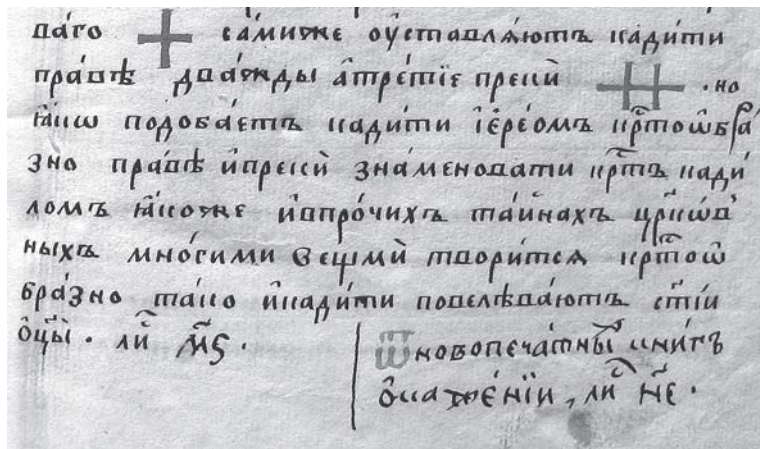 ваго са́миже оу҆ставля́ютъ кади́ти
пра́вѣ два́жды а҆тре́тїе преки̑ . но
ꙗ҆́кѡ подоба́етъ кади́ти і҆ере́омъ кр҇тоѡ҆бра́
зно пра́вѣ и҆преки̑ зна́меновати кр҇тъ кади́
ломъ ꙗ҆́коже и҆впро́чихъ та́инахъ цр҃ко́в
ныхъ мно́гими вещмѝ твори́тся кр҇тоѡ҆
бра́зно та́ко и҆кади́ти повелѣва́ютъ ст҃і́и
ѻ҆ц҃ы̀ . ли҇ м҃ѕ .
ѿновопеча́тны҇ кни́гъ
ѡ҆каже́нїи , ли҇ н҃е .